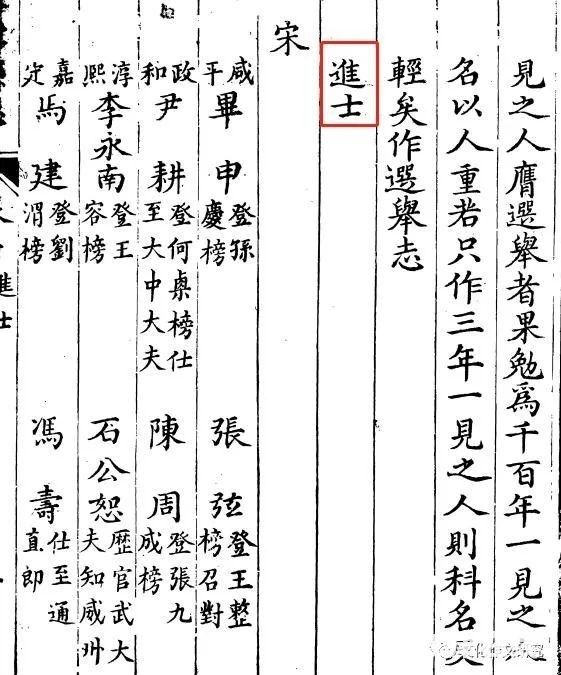 見之人膺選舉者果勉爲千百年一見之
名以人重若只作三年一見之人則科名
輕矣作選舉志
進士
宋
咸平畢申登孫慶榜 張弦登王整榜召對
政和尹耕登何㮚榜仕至大中大夫 陳周登張九成榜
淳熙李永南登王容榜 石公恕歷官武大夫知威州
嘉定馬建登劉渭榜 馮壽仕至通直郎
進士